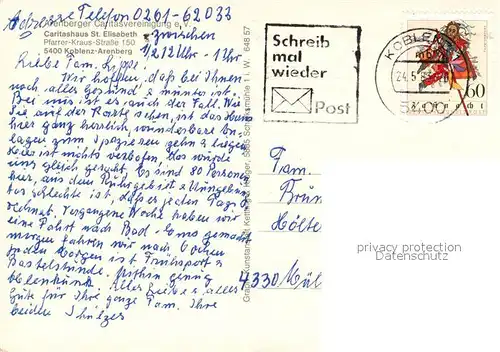 Adresse Telefon 0261-62033
Arenberger Caritasvereinigung e.V.
Caritashaus St. Elisabeth
Pfarrer-Kraus-Straße 150
5400 Koblenz-Arenberg
zwischen
1/2 12 Uhr - 1 Uhr
Liebe Fam. Lipps
Wir hoffen, daß bei Ihnen
noch alles gesund & munter ist.
Bei uns ist es auch der Fall. Wie
Sie auf der Karte sehen, ist das Haus
hier ganz herrlich, wunderbare An-
lagen zum Spazieren gehn &
hier ist nichts verboten,
uns gleich Es sind 80 Personen
hier, aus dem Ruhrgebiet & Umgebung
schlechte ist, daß es jeden Tag
regnet. Vergangene Woche haben wir
eine Fahrt nach Bad-Ems gemacht
morgen fahren wir nach Cochem
jeden Morgen ist Frühsport &
Bastelstunde. Mithin genug
Alles Liebe & alles
Gute für Ihre ganze Fam. Ihre
beiden Schülzes
Schreib
mal
wieder
Post
KOBLENZ
24.5
5400
60
Fam.
Brun
Hölte
4330 Mül
privacy protection
Datenschutz